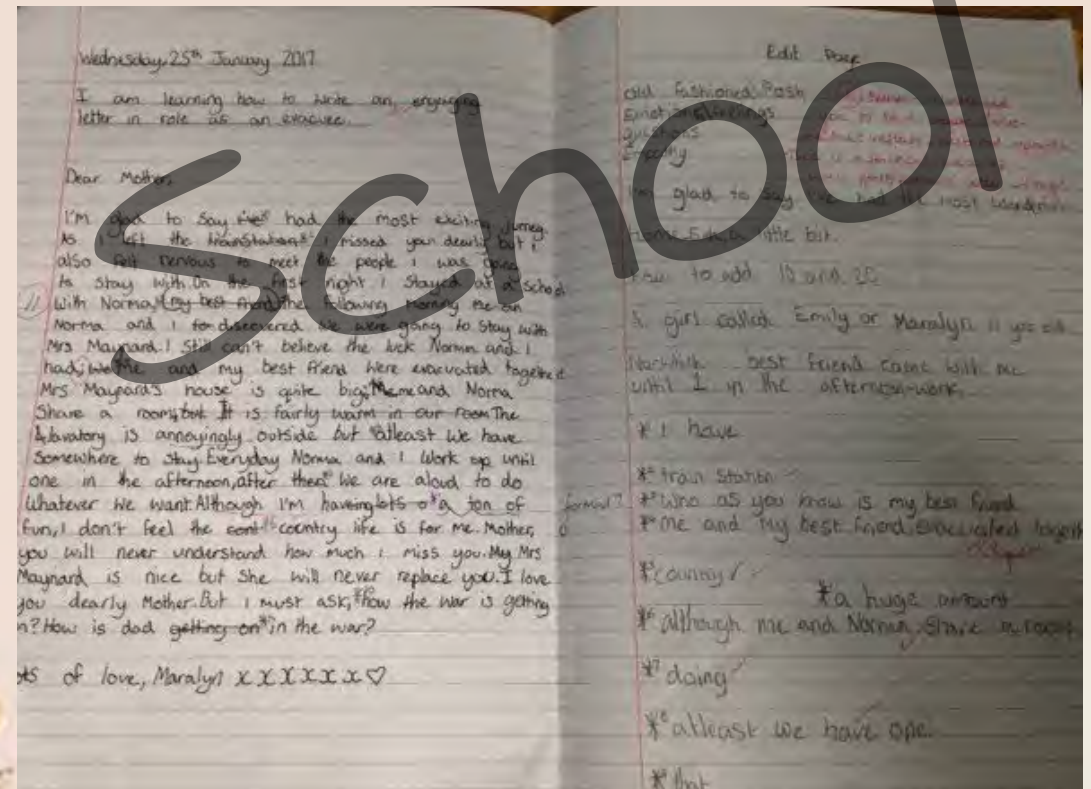 School
Wednesday, 25th January 2017
I am learning how to write an engaging
letter in role as an evacuee.
Dear Mother,
I'm glad to say had the most exciting
As I left the I missed you dearly but I
also felt nervous to meet the people I was going
to stay with. On the first night I stayed at a school
With Norma (my best friend) the following morning me an
Norma and I discovered we were going to stay with
Mrs Maynard. I still can't believe the luck Norma and I
had, we me and my best friend were evacuated together
Mrs Maynard's house is quite big. me and Norma
Share a room, but It is fairly warm in our room. The
lavatory is annoyingly outside but atleast we have
Somewhere to stay. Everyday Norma and I work up until
one in the afternoon, after then we are aloud to do
Whatever we want. Although I'm lots o a ton of
fun, I don't feel the country life is for me. Mother,
you will never understand how much I miss you. My Mrs
Maynard is nice but She will never replace you. I love
you dearly Mother. But I must ask, how the war is getting
n? How is dad getting on in the war?
ots of love, Maralyn x x x x x x ♡
Edit Page
Old Fashioned Posh
Emotions/feelings
Questions
Empathy
I'm glad to say I've had the most
little bit.
how to add 10 and 20
A girl called Emily or Maralyn 11
best friend came with me
until 1 in the afternoon-work.
* I have
* train station
formal? * Who as you know is my best friend
* Me and my best friend evacuated
* country ✓
* a huge amount
*6 although me and Norma share a room
*7 doing ✓
*8 atleast we have one.
*9 that